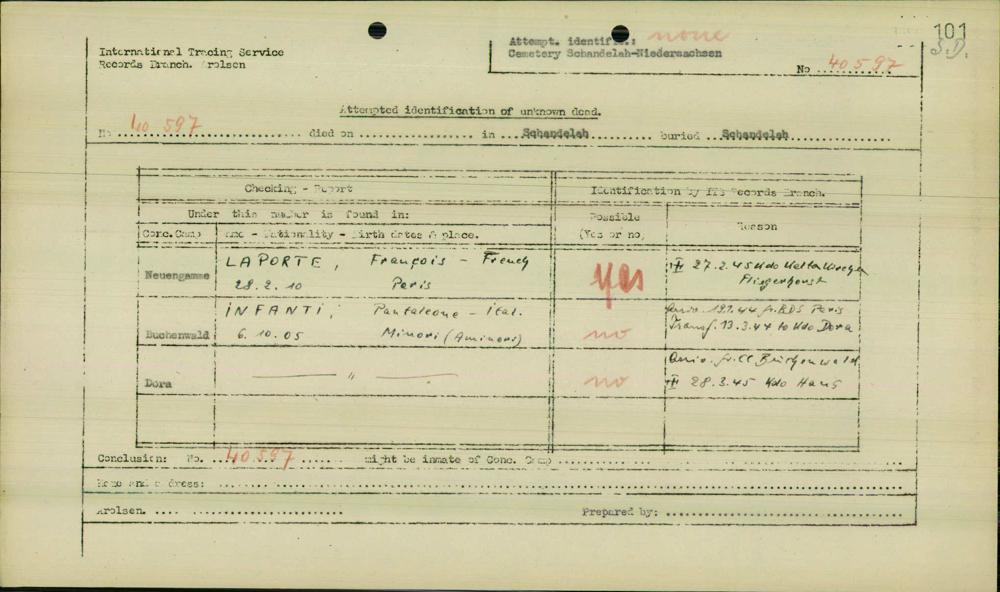 101
S.D.
International Tracing Service
Records Branch. Arolsen
Attempt. identif.: none
Cemetery Schandelah-Niedersachsen
No 40597
Attempted identification of unknown dead.
No 40 597 died on in Schandelah buried Schandelah
Checking - Report
Identification by ITS Records Branch.
Under this number is found in:
Possible
(Yes or no)
Reason
Conc.Camp
Name - Nationality - Birth dates & place.
Neuengamme
LAPORTE, François - French
28.2.10 Paris
yes
27.2.45 Kdo
Fliegerhorst
Buchenwald
INFANTI, Pantaleone - Ital.
6.10.05 Minori (Aminori)
no
Arriv. 19.1.44 fr. BDS Paris
Transf. 13.3.44 to Kdo Dora
Dora
— " —
no
Arriv. fr. CC Buchenwald
28.3.45 Kdo
Conclusion: No. 40597 might be inmate of Conc. Camp
Name and address:
Arolsen.
Prepared by: